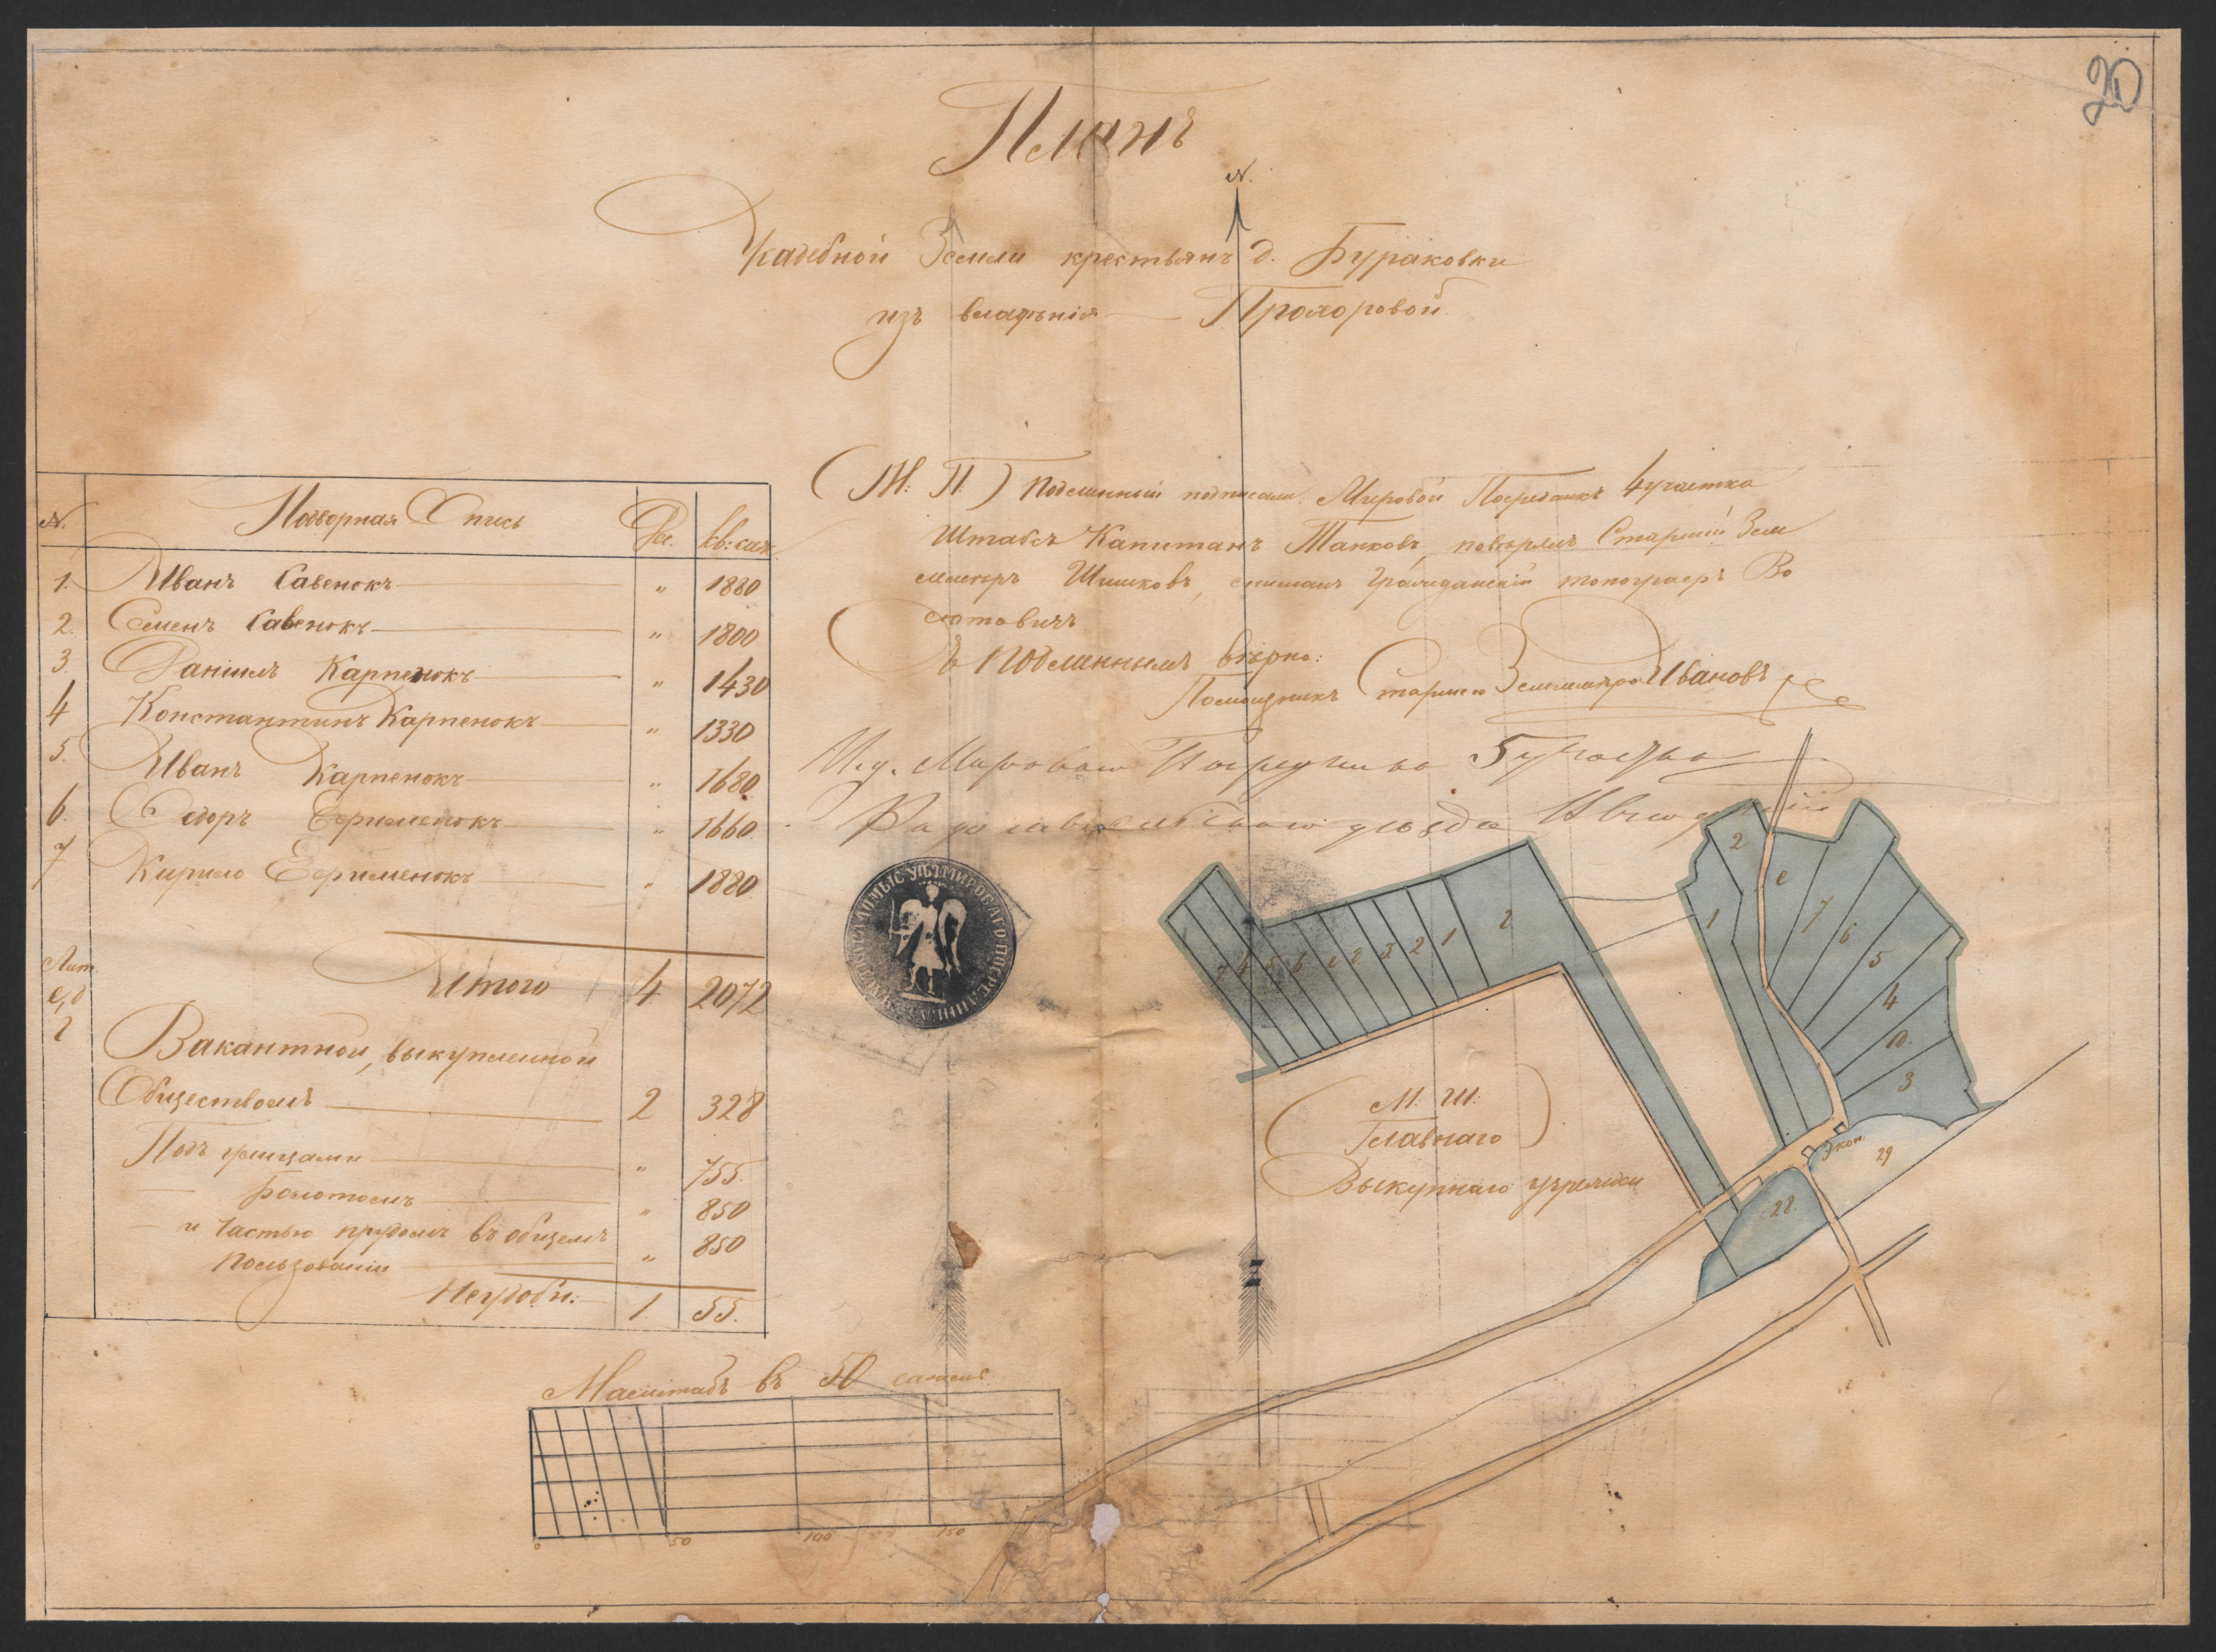 20
Планъ
N.
Усадебной Земли крестьянъ д. Бураковки
изъ владѣнія Прохоровой
(М: П.) Подлинный подписали: Мировой Посредникъ 4 участка
Штабсъ Капитанъ Тапковъ, повѣрялъ Старшій Зем
лемѣръ Шишковъ, снималъ Гражданскій топографъ Во
Съ Подлиннымъ вѣрно:
Помощникъ Старшаго Землемѣра Ивановъ
И.д. Мироваго Посредника 5 участка
Радомысльскаго уѣзда
N. Подворная Опись Де. кв: саж.
1. Иванъ Савенокъ " 1880
2. Семенъ Савенокъ " 1800
3. Даніилъ Карпенокъ " 1430
4 Константинъ Карпенокъ " 1330
5. Иванъ Карпенокъ " 1680
6. Ѳедоръ Ефименокъ " 1660
7 Кирило Ефименокъ " 1880
Итого 4 2072
Лит.
е, д
г
Вакантной, выкупленной
Обществомъ 2 328
Подъ улицами " 755.
— болотомъ " 850
— и Частью прудомъ въ общемъ
пользованіи " 850
Неудобн: 1. 55.
Масштабъ въ 50 сажень
0 50 100 150
7 4 5 6 е 2 3 2 1 г
2 е 1 7 6 5 4 п. 3
Экон.
29
28.
(М. Ш.
Главнаго)
Выкупнаго учрежден